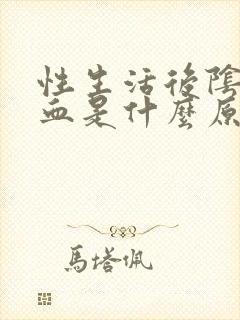 性生活後陰
血是什麼原
馬塔佩